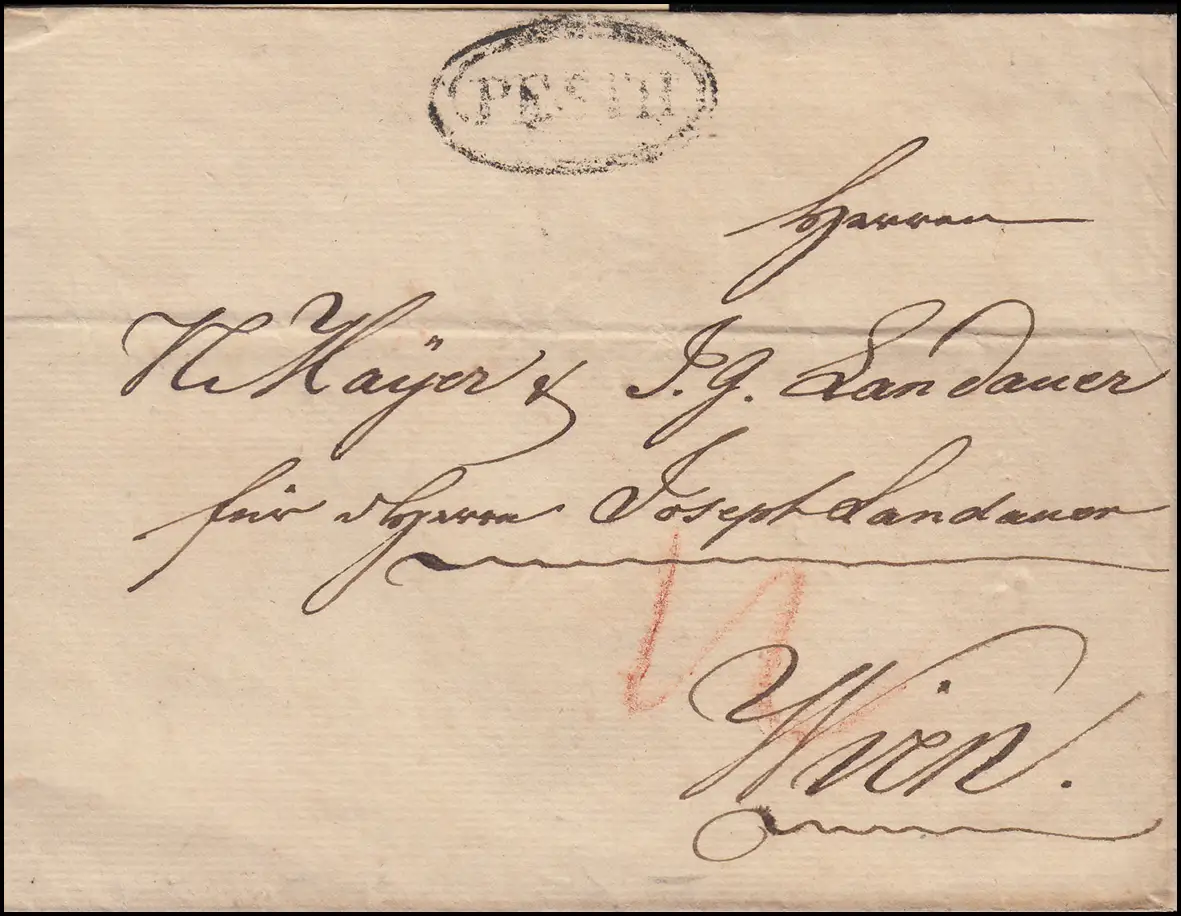 PESTH
Herren
N Mayer & J. G. Landauer
für Herrn Joseph Landauer
Wien.